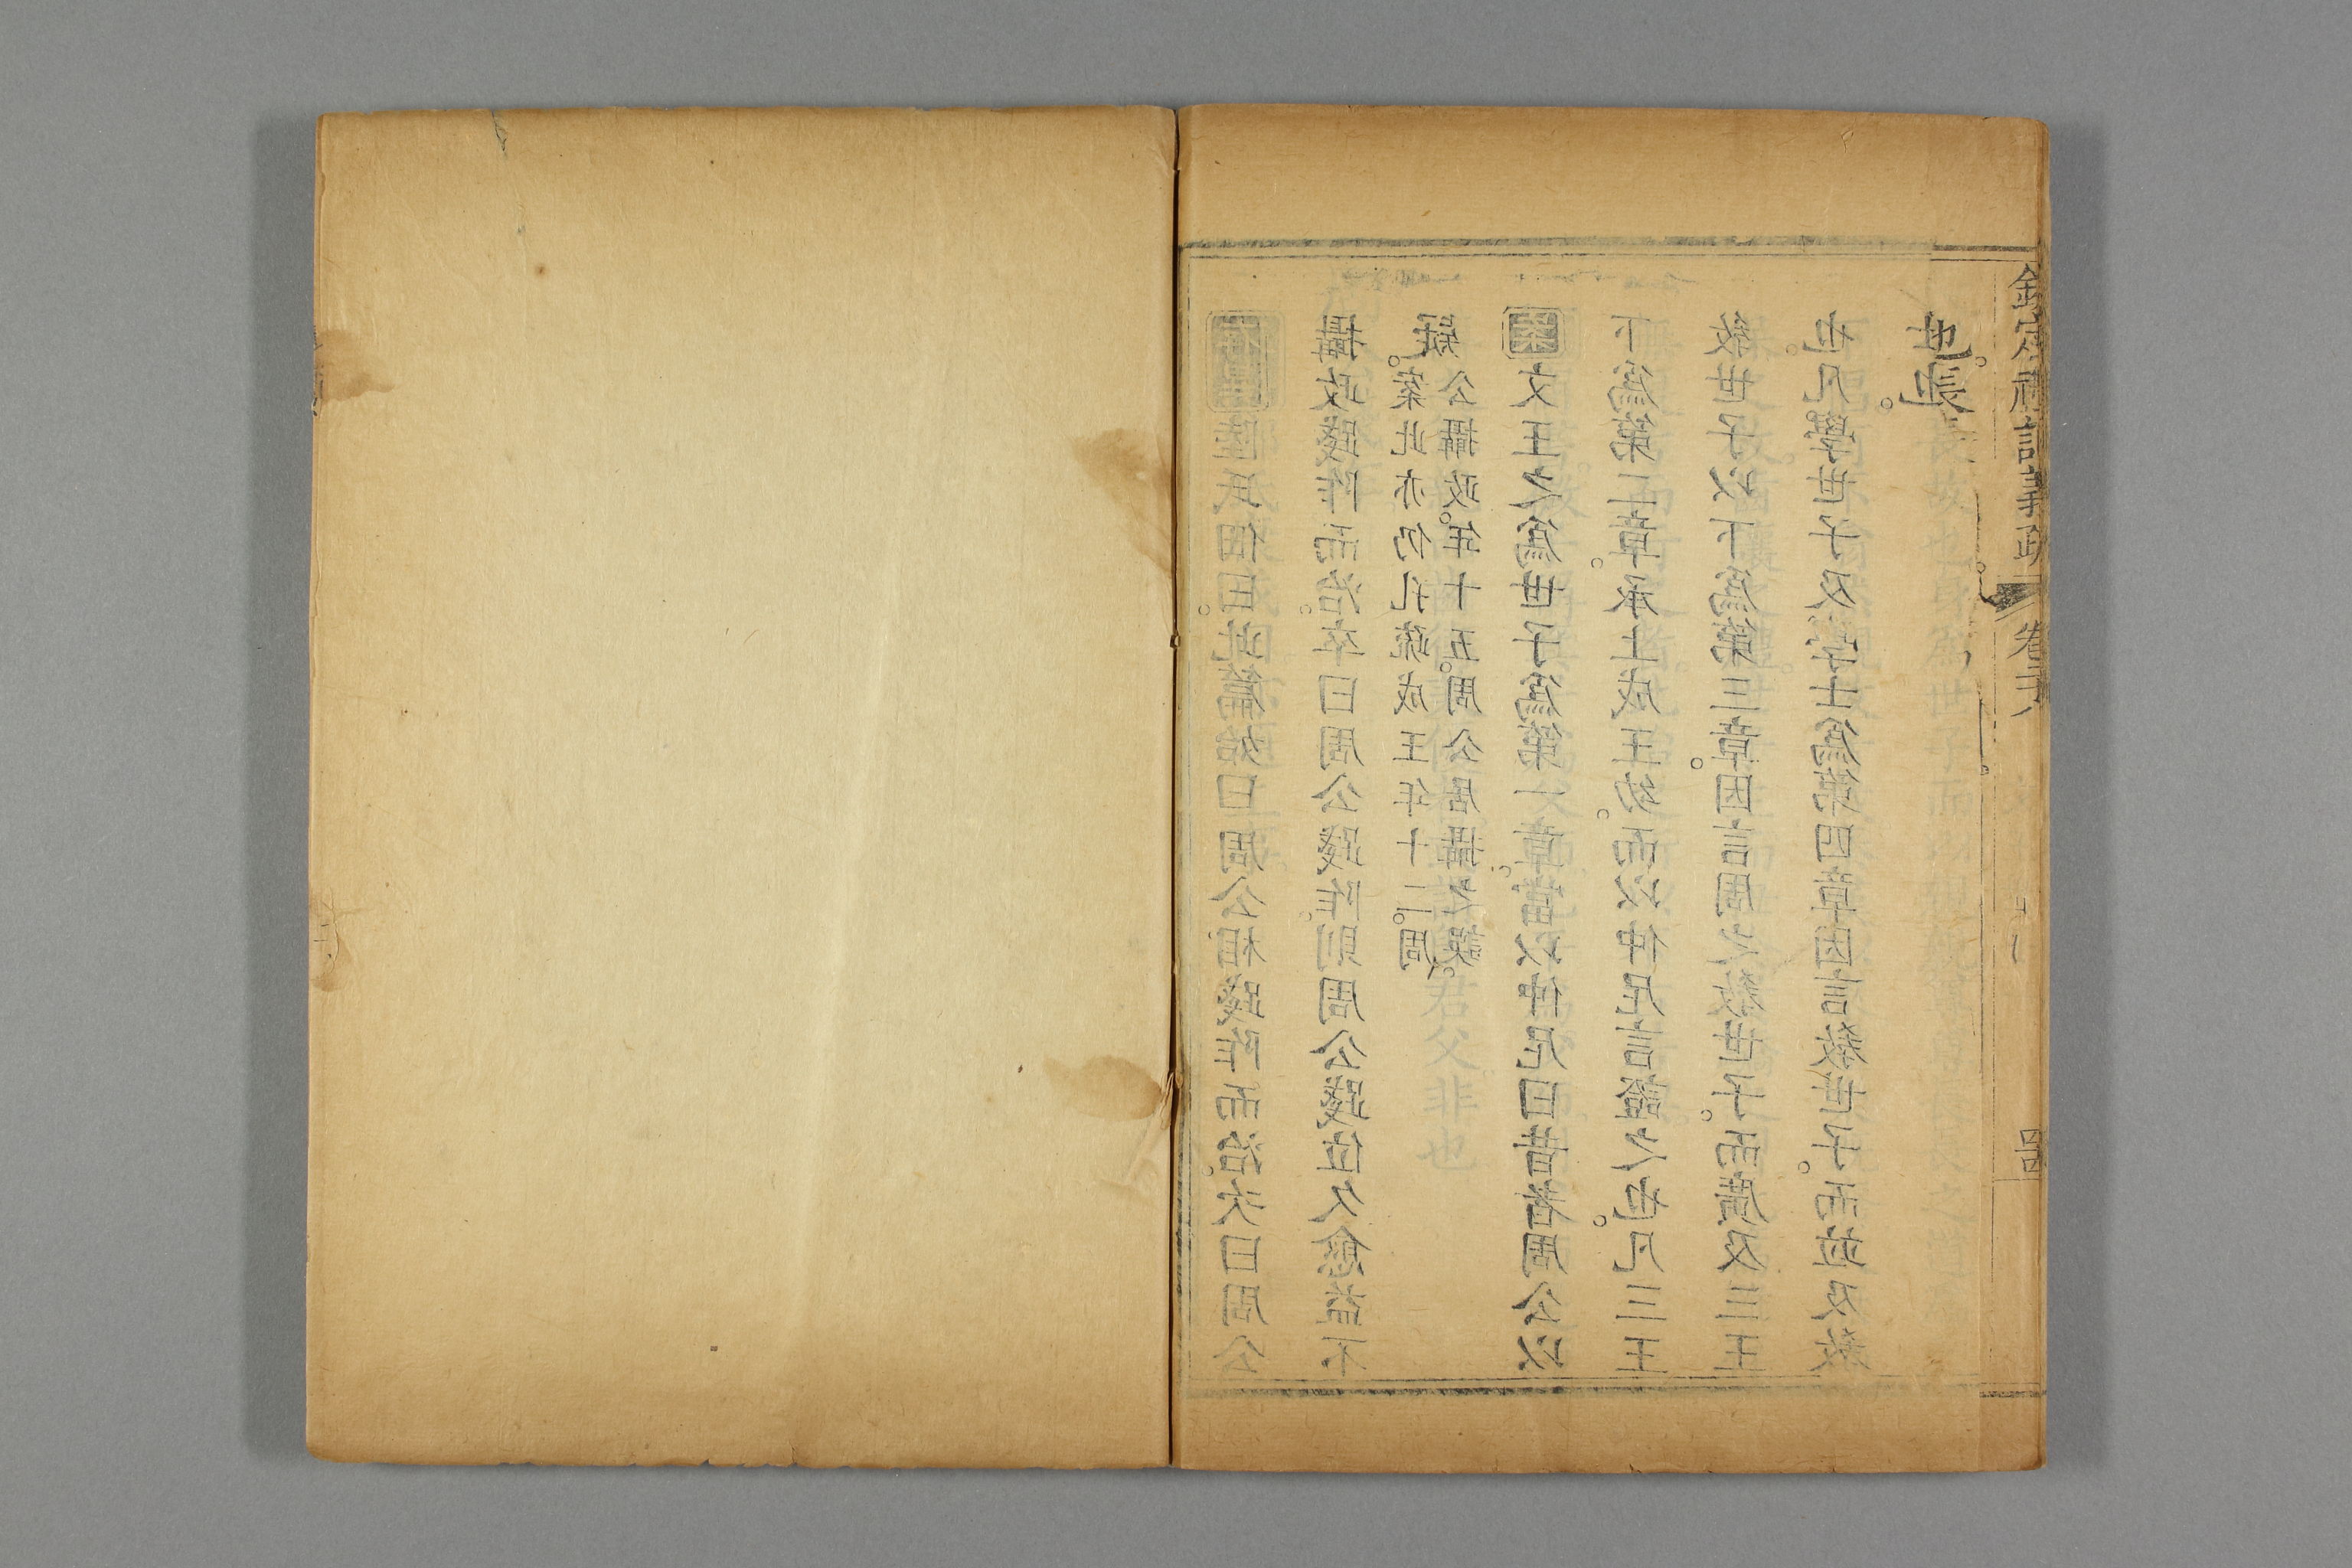 陸氏佃曰此篇始曰。周公相踐阼而治。次曰周公
攝政踐阼而治。卒曰周公踐阼。則周公踐位久愈益不
疑。案此亦仍孔疏成王年十二。周
公攝政。年十五。周公居攝之誤。
案文王之爲世子爲第一章。舊以仲尼曰昔者周公以
下爲第二章。承上成王幼。而以仲尼言證之也。凡三王
教世子以下爲第三章。因言周公教世子。而廣及三王
也。凡學世子及學士爲第四章因言教世子。而及教
也。
欽定禮記義疏 卷二十八 四